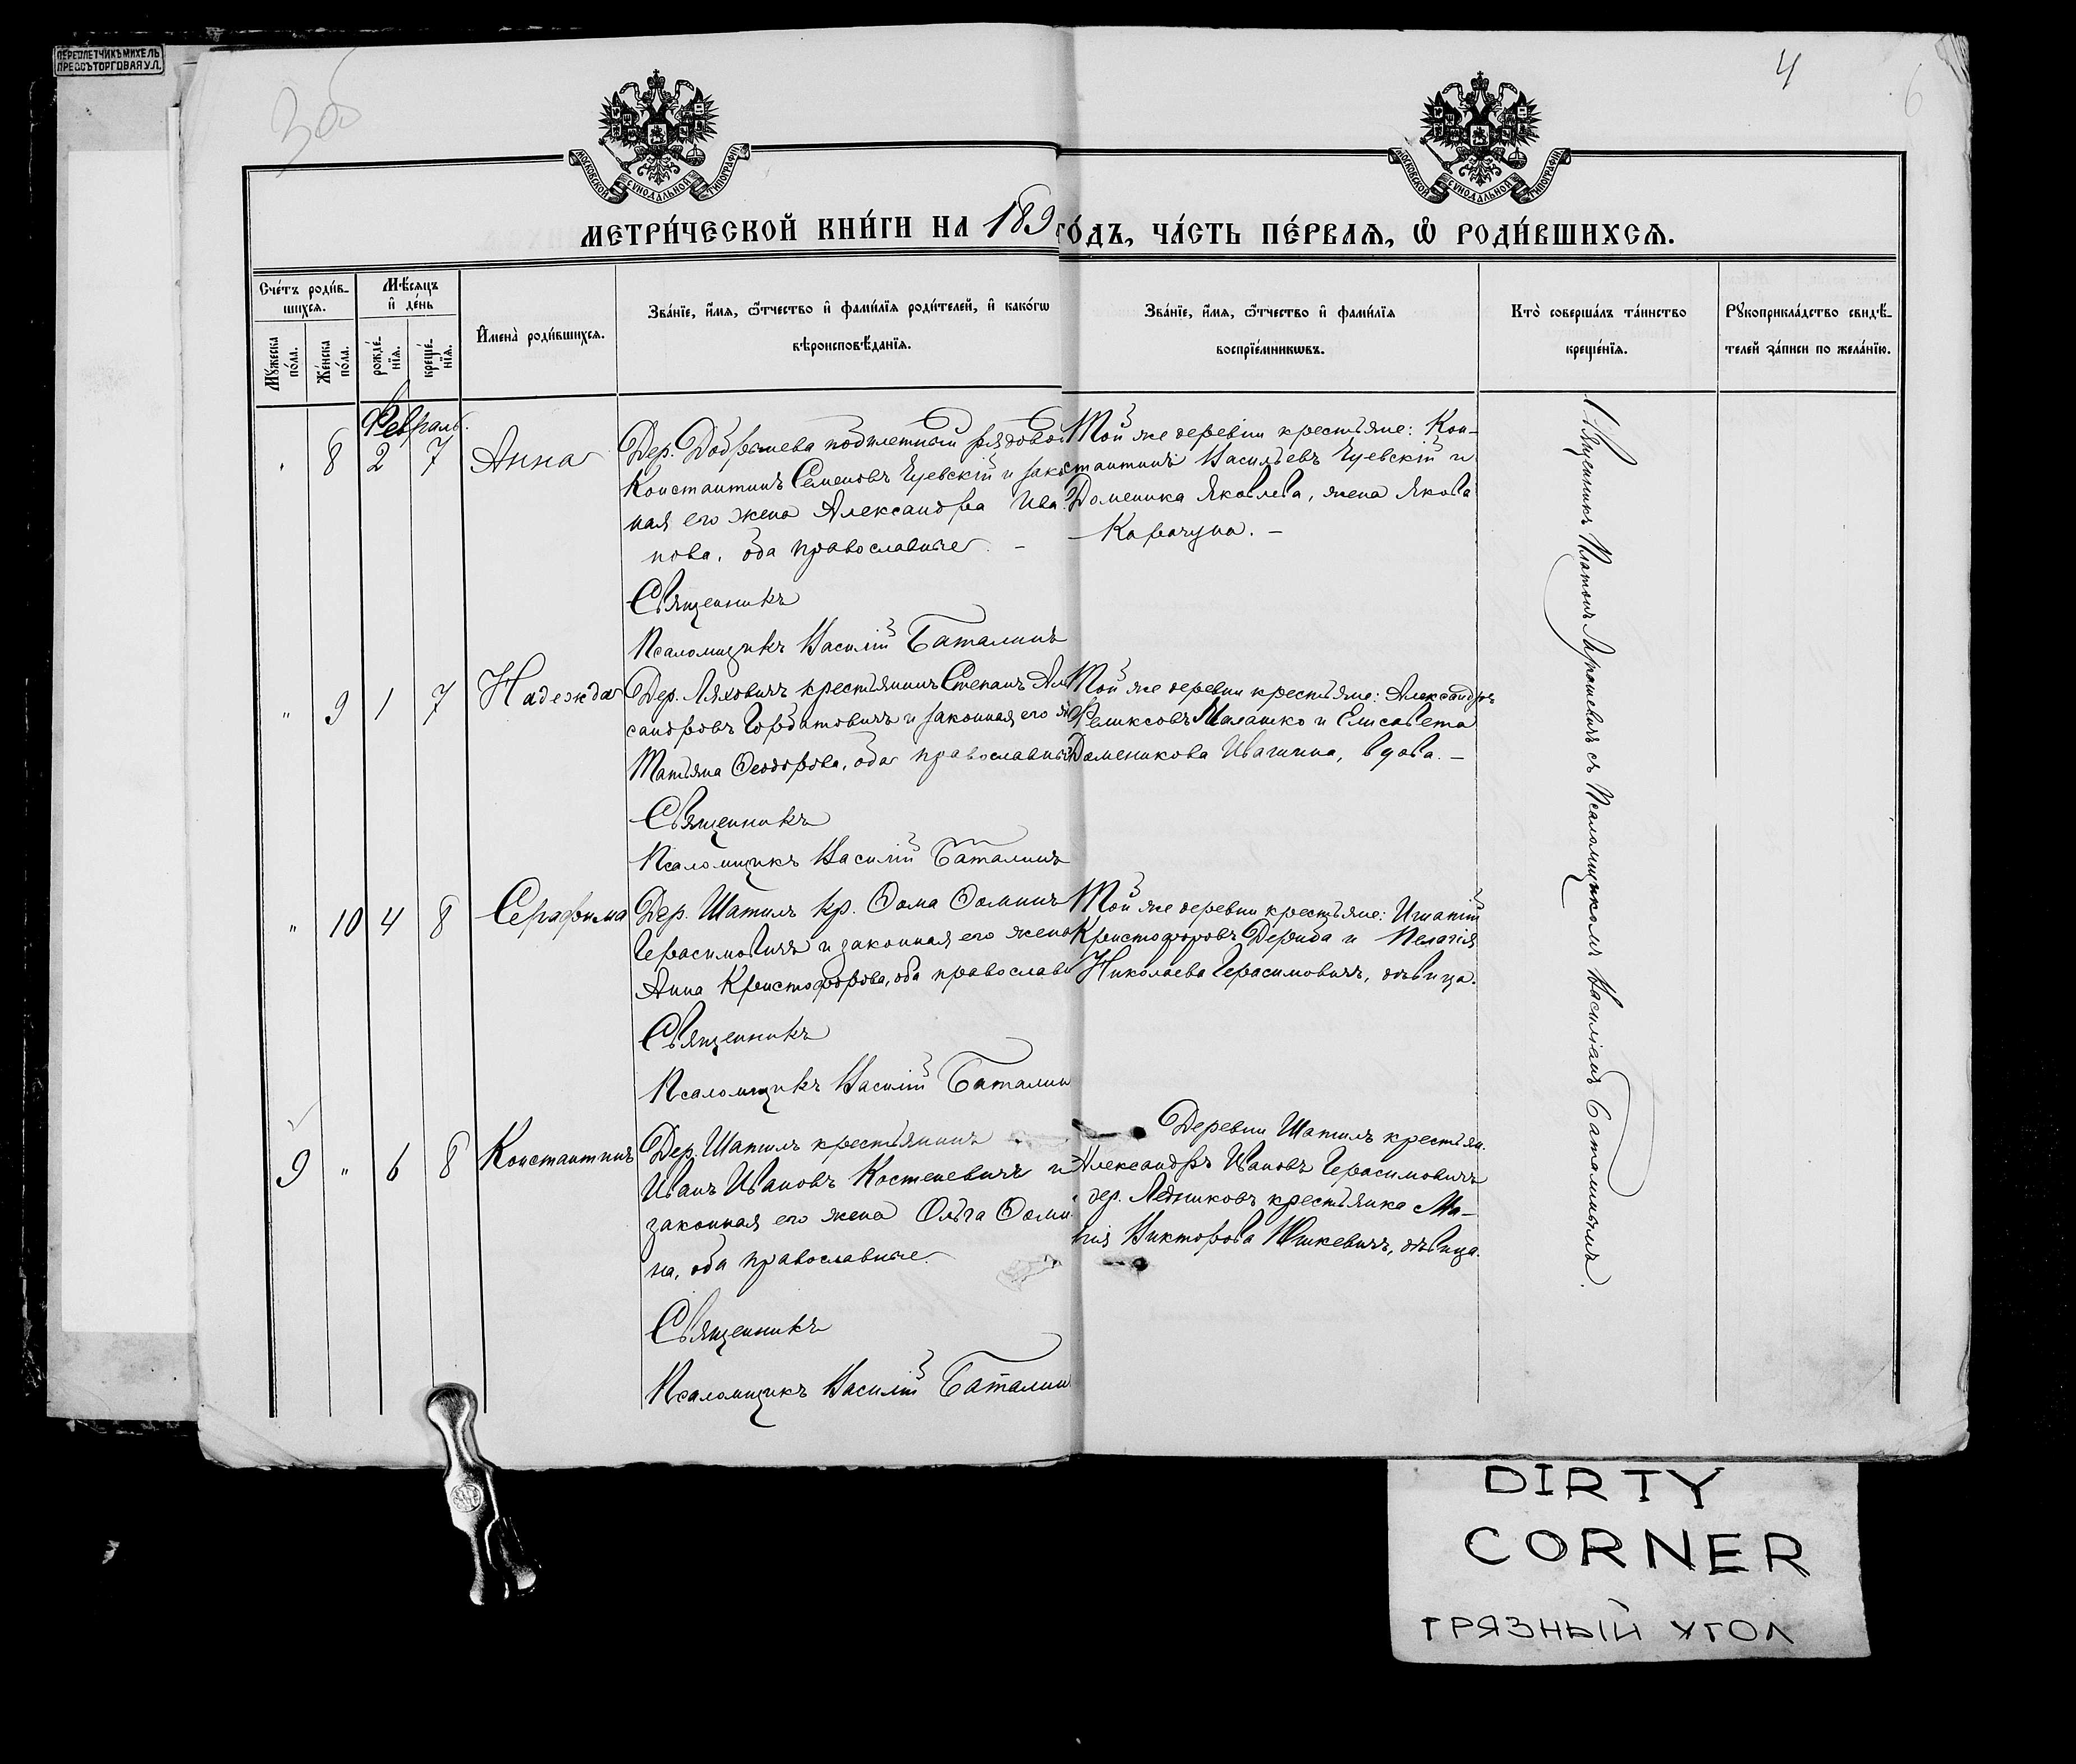 ПЕРЕПЛЕТЧИКЪ МИХЕЛЬ
ТОРГОВАЯ УЛ.
3об
4
6
МОСКОВСКОЙ СѴНОДАЛЬНОЙ ТИПОГРАФІИ
МОСКОВСКОЙ СѴНОДАЛЬНОЙ ТИПОГРАФІИ
МЕТРИ́ЧЕСКОЙ КНИ́ГИ НА 189
ГО́ДЪ, ЧА́СТЬ ПЕ́РВАѦ, Ѡ҆ РОДИ́ВШИХСѦ.
Сче́тъ роди́в-
шихсѧ.
Мꙋ́жеска по́ла.
Же́нска по́ла.
Мѣ́сѧцъ и҆ де́нь
рожде́-нїѧ.
креще́-нїѧ.
И҆мена̀ роди́вшихсѧ.
Зва́нїе, и҆́мѧ, ѻ҆́тчество и҆ фами́лїѧ роди́телей, и҆ како́гѡ
вѣроисповѣ́данїѧ.
Зва́нїе, и҆́мѧ, ѻ҆́тчество и҆ фами́лїѧ
воспрїе́мникѡвъ.
Кто̀ соверша́лъ та́инство
креще́нїѧ.
Рꙋкоприкла́дство свидѣ́-
телей за́писи по жела́нїю.
Февраль.
8 2 7 Анна
Дер. рядовой
Константинъ Семеновъ и зако
ная его жена Александра Ива
нова, оба православные. –
Священникъ
Псаломщикъ Василій Баталинъ
Той же деревни крестьяне: Кон-
стантинъ Васильевъ и
Доменика Яковлева, жена Якова
Карачуна. –
" 9 1 7 Надежда
Дер. Ляховичъ крестьянинъ Стефанъ Але
сандровъ Горбатовичъ и законная его ж
Татьяна Ѳеодорова, оба православные
Священникъ
Псаломщикъ Василій Баталинъ
Той же деревни крестьяне: Александръ
Феликсовъ Малашко и Елисавета
Доменикова Ивашина, вдова. –
" 10 4 8 Серафима
Дер. Шатилъ кр. Ѳома Ѳоминъ
Герасимовичъ и законная его жена
Анна Христофорова, оба православн
Священникъ
Псаломщикъ Василій Баталин
Той же деревни крестьяне: Игнатій
Христофоровъ Дерида и Пелагія
Николаева Герасимовичъ, дѣвица.
9 " 6 8 Константинъ
Дер. Шатилъ крестьянинъ
Иванъ Ивановъ Костеневичъ и
законная его жена Ольга Ѳоми
на, оба православные.
Священникъ
Псаломщикъ Василій Баталин
Деревни Шатилъ крестьян.
Александръ Ивановъ Герасимовичъ
дер. Ледниковъ крестьянка Ма-
рія Викторова Юшкевичъ, дѣвица.
Священникъ Платонъ съ Псаломщикомъ Василіемъ Баталинымъ.
DIRTY
CORNER
ГРЯЗНЫЙ УГОЛ